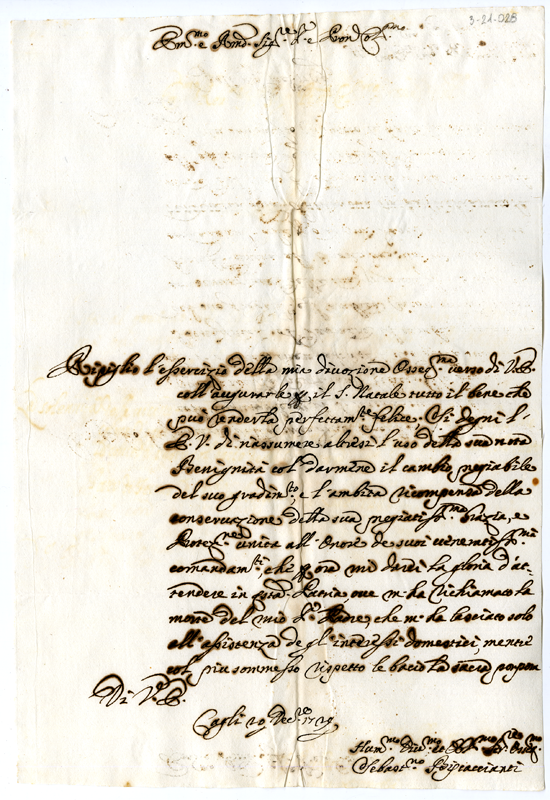 3-21-028
Em.mo e Rmo. Sig.re P.re e Pron Col.mo
Ripiglio l'essercizio della mia divozione Osseq.ma verso di V.E.
coll'augurarle p il S. Natale tutto il bene che
può renderla perfettam.te felice. Si degni l'
E.V. di riassumere altresì l'uso della sua nota
Benignità col darmene il cambio pregiabile
del suo gradim.to, e l'ambita ricompensa della
conservazione della sua pregiatiss.ma Grazia, e
Protez.ne unita all'onore de suoi veneratiss.mi
comandam.ti, che p ora mi darei la gloria d'at-
tendere in q.ta Patria, ove m'ha richiamato la
morte del mio S.r Padre, che m'ha lasciato solo
all'assistenza degl'interessi domestici, mentre
col più sommesso rispetto le bacio la sacra porpora
Di V.E.
Cagli 19 Dec.re 1729
Hum.mo Div.mo ed Obl.mo Osseq.
Sebast.no